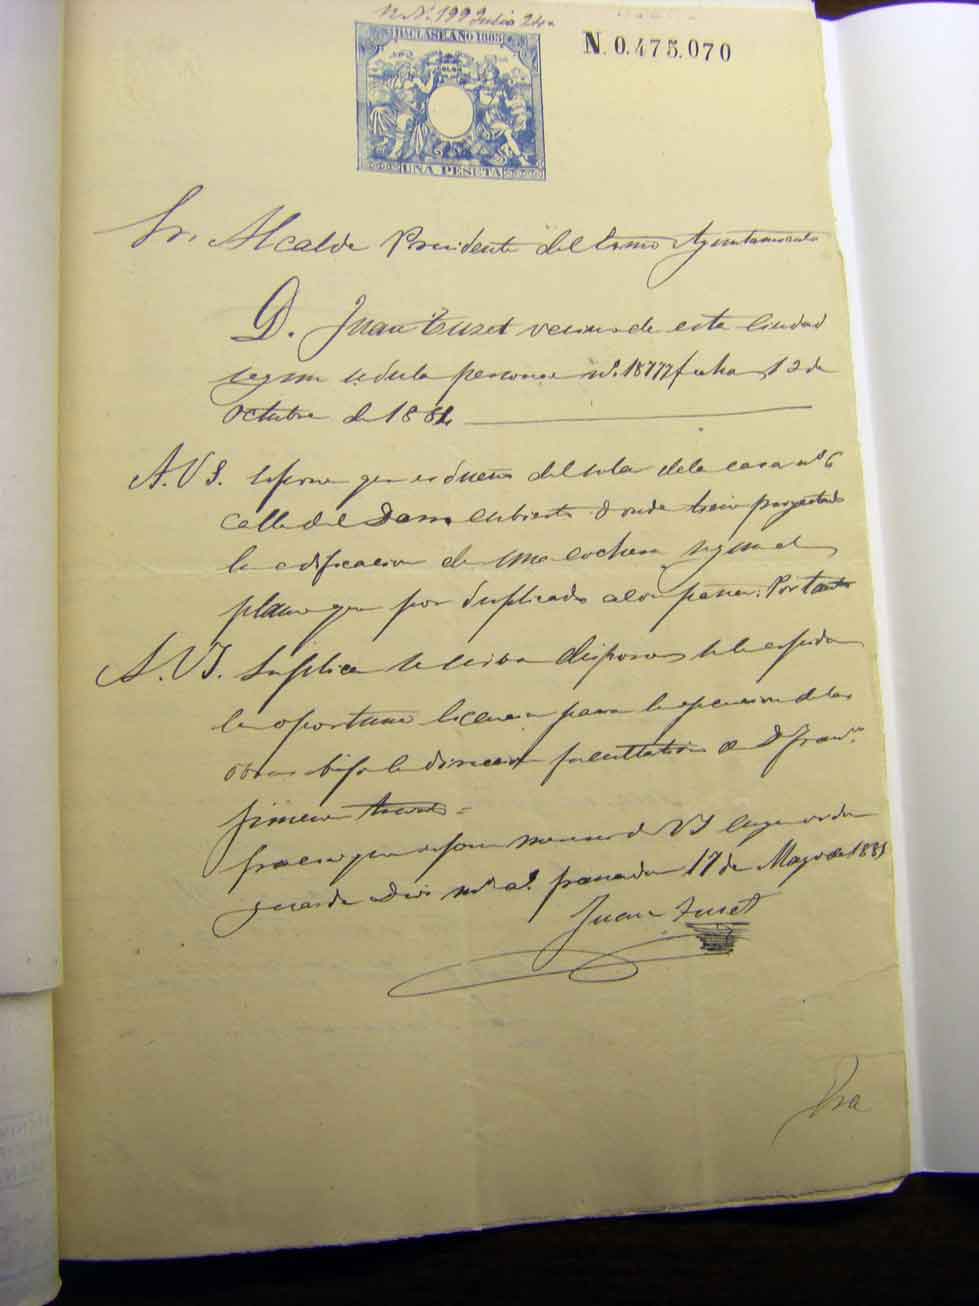 N. 0.475.070
UNA PESETA
Sr. Alcalde Presidente del Excmo Ayuntamiento
D. Juan Tuset vecino de esta Ciudad
segun cédula personal nº. 18777 fecha 12 de
Octubre de 1884
A.V.S. espone que es dueño del solar de la casa nº 6
calle del Darro cubierto donde tiene proyectado
la edificacion de una cochera segun el
plano que por duplicado acompaña. Por tanto
A.V.S. Suplica se sirva disponer se le espida
la oportuna licencia para la ejecucion de las
obras bajo la direccion facultativa de D. Fran.co
Jimenez
Gracia que espera merecer de VS cuya vida
guarde Dios ms. as. Granada 17 de Mayo de 1885
Juan Tuset